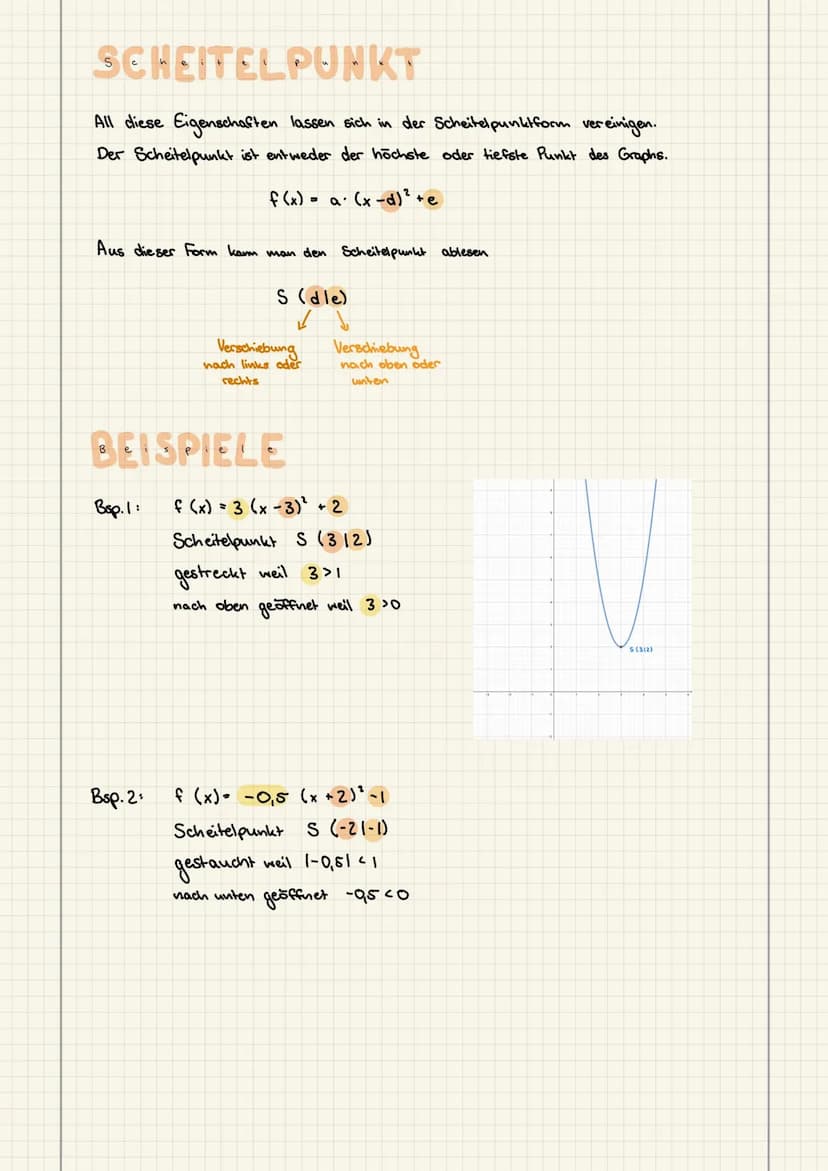 SCHEITELPUNKT
All diese Eigenschaften lassen sich in der Scheitelpunktform vereinigen.
Der Scheitelpunkt ist entweder der höchste oder tiefste Punkt des Graphs.
f(x) = a· (x-d)² +e
Aus dieser Form kann man den Scheitelpunkt ablesen
S (d|e)
Verschiebung nach links oder rechts
Verschiebung nach oben oder unten
BEISPIELE
Bsp.1: f (x) = 3 (x -3)² + 2
Scheitelpunkt S (3|2)
gestreckt weil 3>1
nach oben geöffnet weil 3>0
S(3|2)
Bsp.2: f (x)= -0,5 (x +2)² -1
Scheitelpunkt S (-2|-1)
gestaucht weil |-0,5| < 1
nach unten geöffnet -0,5 <0